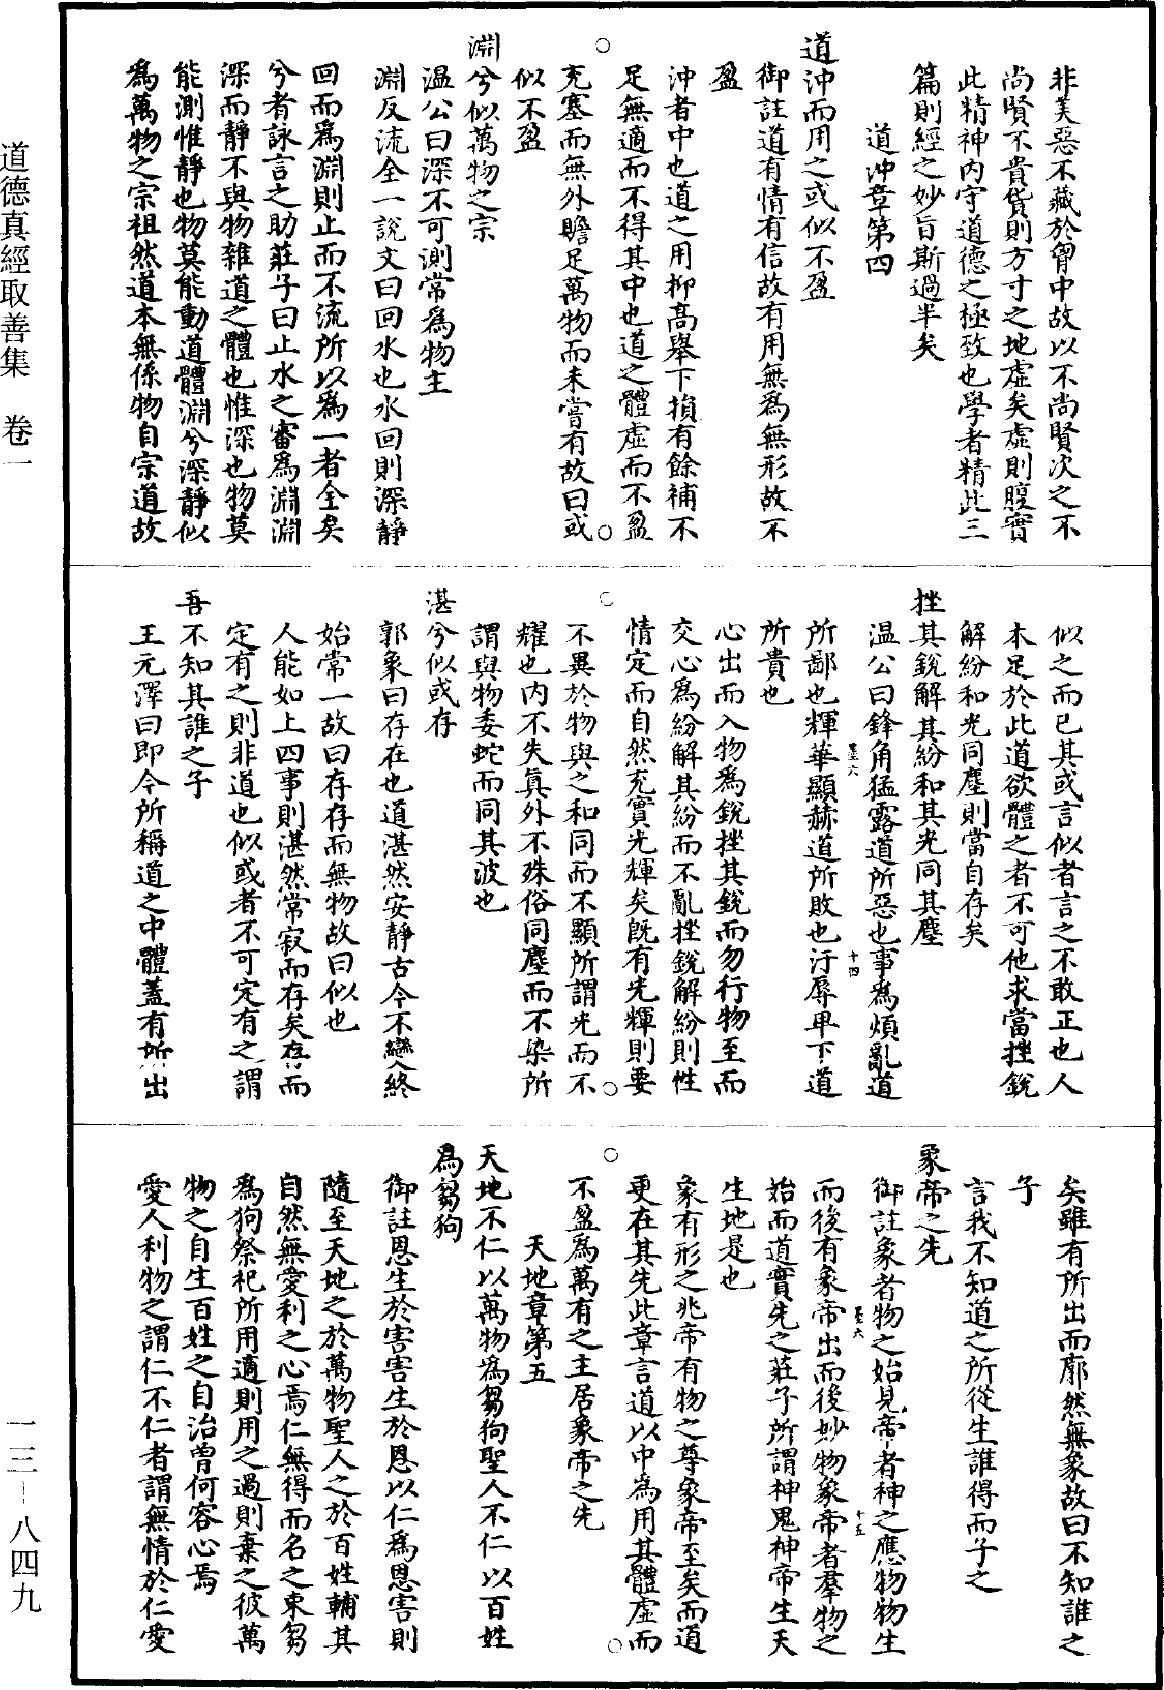 道德真經取善集　卷一
非美惡不藏於胷中故以不尚賢次之不
尚賢不貴貨則方寸之地虛矣虛則腹實
此精神內守道德之極致也學者精此三
篇則經之妙旨斯過半矣
道沖章第四
道沖而用之或似不盈
御註道有情有信故有用無為無形故不
盈
沖者中也道之用抑高舉下損有餘補不
足無適而不得其中也道之體虛而不盈
充塞而無外贍足萬物而未嘗有故曰或
似不盈
淵兮似萬物之宗
温公曰深不可測常為物主
淵反流全一說文曰回水也水回則深靜
回而為淵則止而不流所以為一者全矣
兮者詠言之助莊子曰止水之審為淵淵
深而靜不與物雜道之體也惟深也物莫
能測惟靜也物莫能動道體淵兮深靜似
為萬物之宗祖然道本無係物自宗道故
似之而已其或言似者言之不敢正也人
本足於此道欲體之者不可他求當挫銳
解紛和光同塵則當自存矣
挫其銳解其紛和其光同其塵
温公曰鋒角猛露道所惡也事為煩亂道
所鄙也輝華顯赫道所敗也汙辱卑下道
所貴也
心出而入物為銳挫其銳而勿行物至而
交心為紛解其紛而不亂挫銳解紛則性
情定而自然充實光輝矣既有光輝則要
不異於物與之和同而不顯所謂光而不
耀也內不失真外不殊俗同塵而不染所
謂與物委蛇而同其波也
湛兮似或存
郭象曰存在也道湛然安靜古今不變終
始常一故曰存存而無物故曰似也
人能如上四事則湛然常寂而存矣存而
定有之則非道也似或者不可定有之謂
吾不知其誰之子
王元澤曰即今所稱道之中體蓋有所出
矣雖有所出而廓然無象故曰不知誰之
子
言我不知道之所從生誰得而子之
象帝之先
御註象者物之始見帝者神之應物物生
而後有象帝出而後妙物象帝者羣物之
始而道實先之莊子所謂神鬼神帝生天
生地是也
象有形之兆帝有物之尊象帝至矣而道
更在其先此章言道以中為用其體虛而
不盈為萬有之主居象帝之先
天地章第五
天地不仁以萬物為芻狗聖人不仁以百姓
為芻狗
御註恩生於害害生於恩以仁為恩害則
隨至天地之於萬物聖人之於百姓輔其
自然無愛利之心焉仁無得而名之束芻
為狗祭祀所用適則用之過則棄之彼萬
物之自生百姓之自治曾何容心焉
愛人利物之謂仁不仁者謂無情於仁愛
一三－八四九